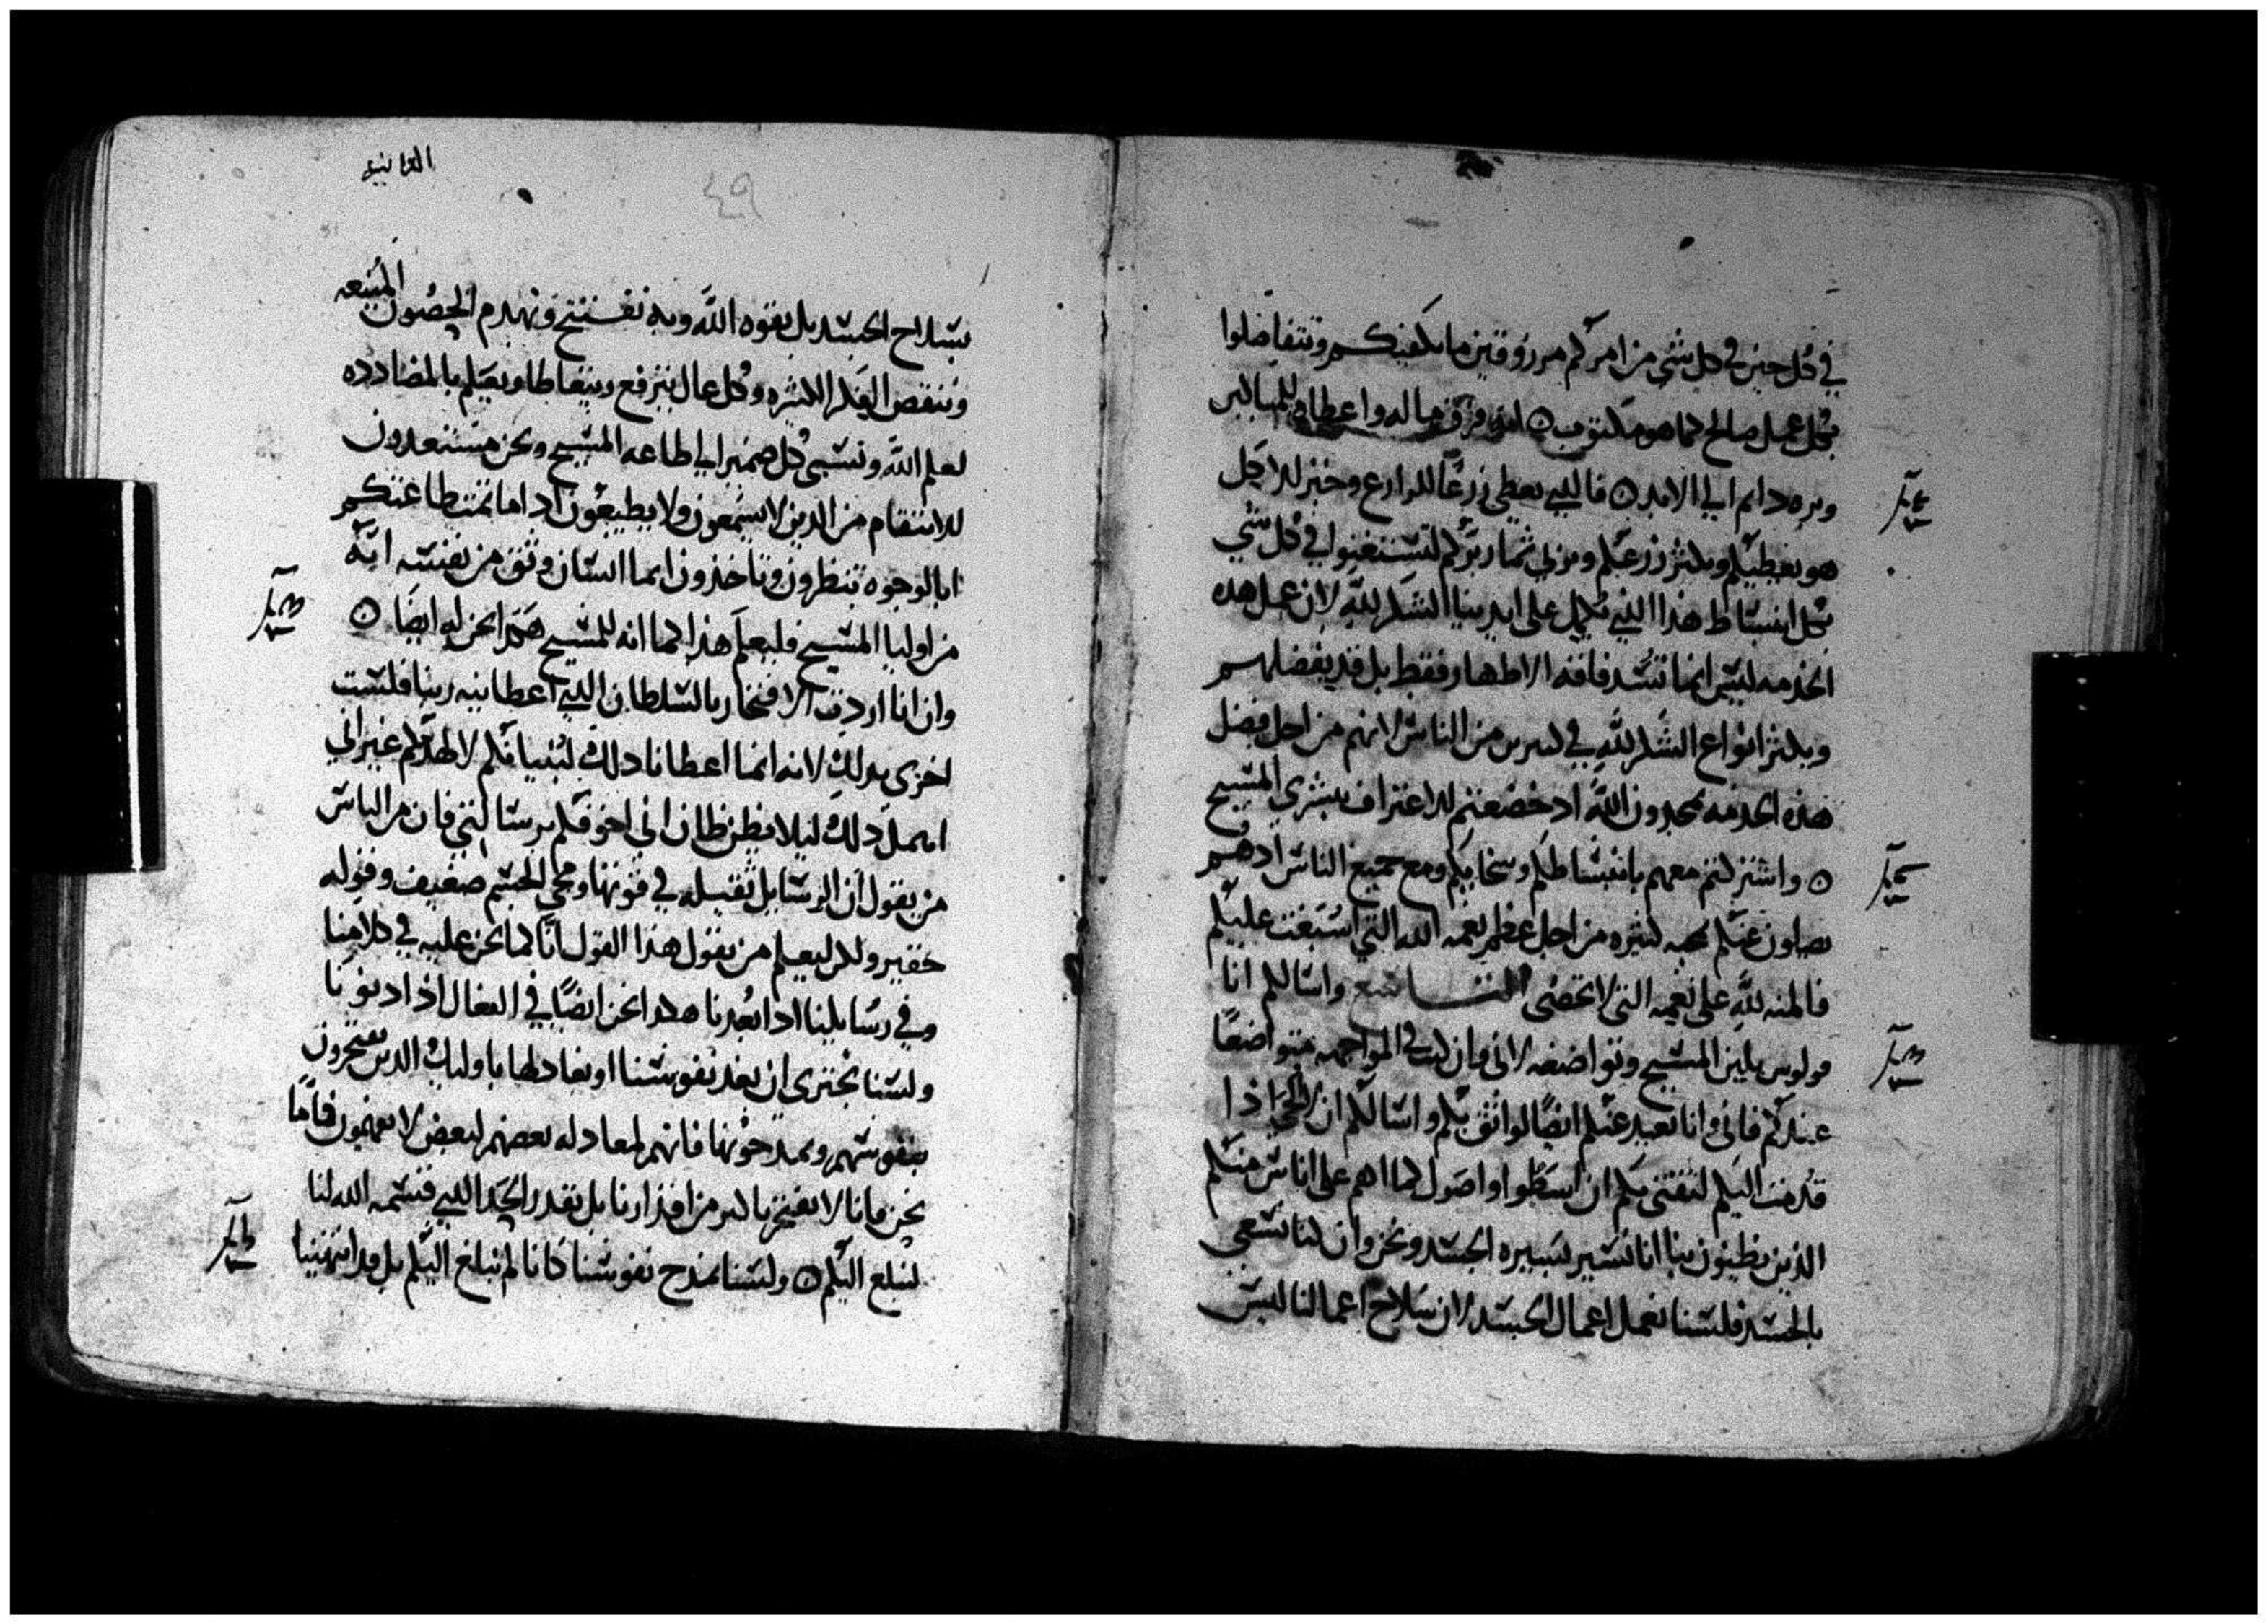 في كل حين في كل شي من امركم مرزوقين ما يكفيكم وتتفاضلوا
بكل عمل صالح كما هو مكتوب ○ انه فرق ماله واعطاه للمساكين
وبره دايم الي الابد ○ فالدي يعطي زرعًا للزارع وخبز للاكل
هو يعطيكم ويكثر زرعكم ويزكي ثمار بركم لتستغنوا في كل شي
بكل انبساط هذا الذي يكمل على ايدينا الشكر لله لان عمل هده
الخدمه ليس انما تسد فاقه الاطهار فقط بل قد يفضلهم
ويكثر انواع الشكر لله في كثيرين من الناس لانهم من اجل فضل
هذه الخدمه يمجدون الله اد خضعتم للاعتراف ببشري المسيح
○ واشتركتم معهم بانبساطكم وسخايكم ومع جميع الناس ادهم
يصلون عنكم بمحبه كثيره من اجل عظم نعمه الله التي اسبغت عليكم
فالمنه لله على نعمه التي لا تحصى التاسع واسالكم انا
بولوس بلين المسيح وتواضعه لاني وان كنت في المواجهه متواضعًا
عندكم فاني وانا بعيد عنكم ايضًا لواثق بكم واسالكم ان لا الجى اذا
قدمت اليكم لثقتي بكم ان اسطوا واصول كما اهم على اناس منكم
الذين يظنون بنا انا نسير بسيره الجسد ونحن وان كنا نسعي
بالجسد فلسنا نعمل اعمال الجسد لان سلاح اعمالنا ليس
الثانيه
٤٩
بسلاح الجسد بل بقوه الله وبه نفتتح ونهدم الحصون المنيعه
وننقض الفكر الكثيره وكل عال يترفع ويتعاطا ويعيلم بالمضادده
لعلم الله ونسبى كل ضمير الي طاعه المسيح ونحن مستعدون
للانتقام من الدين لا يسمعون ولا يطيعون ادا ما تمت طاعتكم
ابالوجوه تنظرون وتاخذون ايما انسان وثق من نفسه انه
من اوليا المسيح فليعلم هذا كما انه للمسيح هكدا نحن له ايضًا ○
وان انا اردت الافتخار بالسلطان الذي اعطانيه ربنا فلست
اخزى بدلك لانه انما اعطانا دلك لبنيانكم لا لهدمكم غير اني
امهل دلك ليلا يظن ظان اني اخوفكم برسالتي فان من الناس
من يقول ان الرسايل ثقيله في قوتها ومجي الجسم ضعيف وقوله
حقير ولكن ليعلم من يقول هذا القول انا كما نحن عليه في كلامنا
وفي رسايلنا ادا بعدنا هكدا نحن ايضًا في الفعال اذا دنونا
ولسنا نجتري ان نعد نفوسنا او نعادلها باوليك الدين يفتخرون
بنفوسهم ويمدحونها فانهم لمعادله بعضهم لبعض لا يفهمون فاما
نحن فانا لا نفتخر باكبر من اقدارنا بل بقدر الحد الذي قسمه الله لنا
لنبلغ اليكم ○ ولسنا نمدح نفوسنا كانا لم نبلغ اليكم بل قد انتهينا